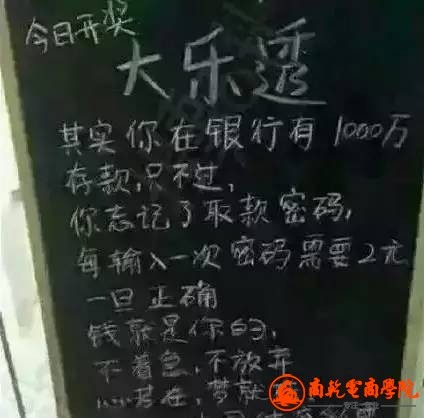 今日开奖
大乐透
其实你在银行有1000万
存款,只不过,
你忘记了取款密码,
每输入一次密码需要2元
一旦正确
钱就是你的,
不着急,不放弃
心若在,梦就
商乾电商學院